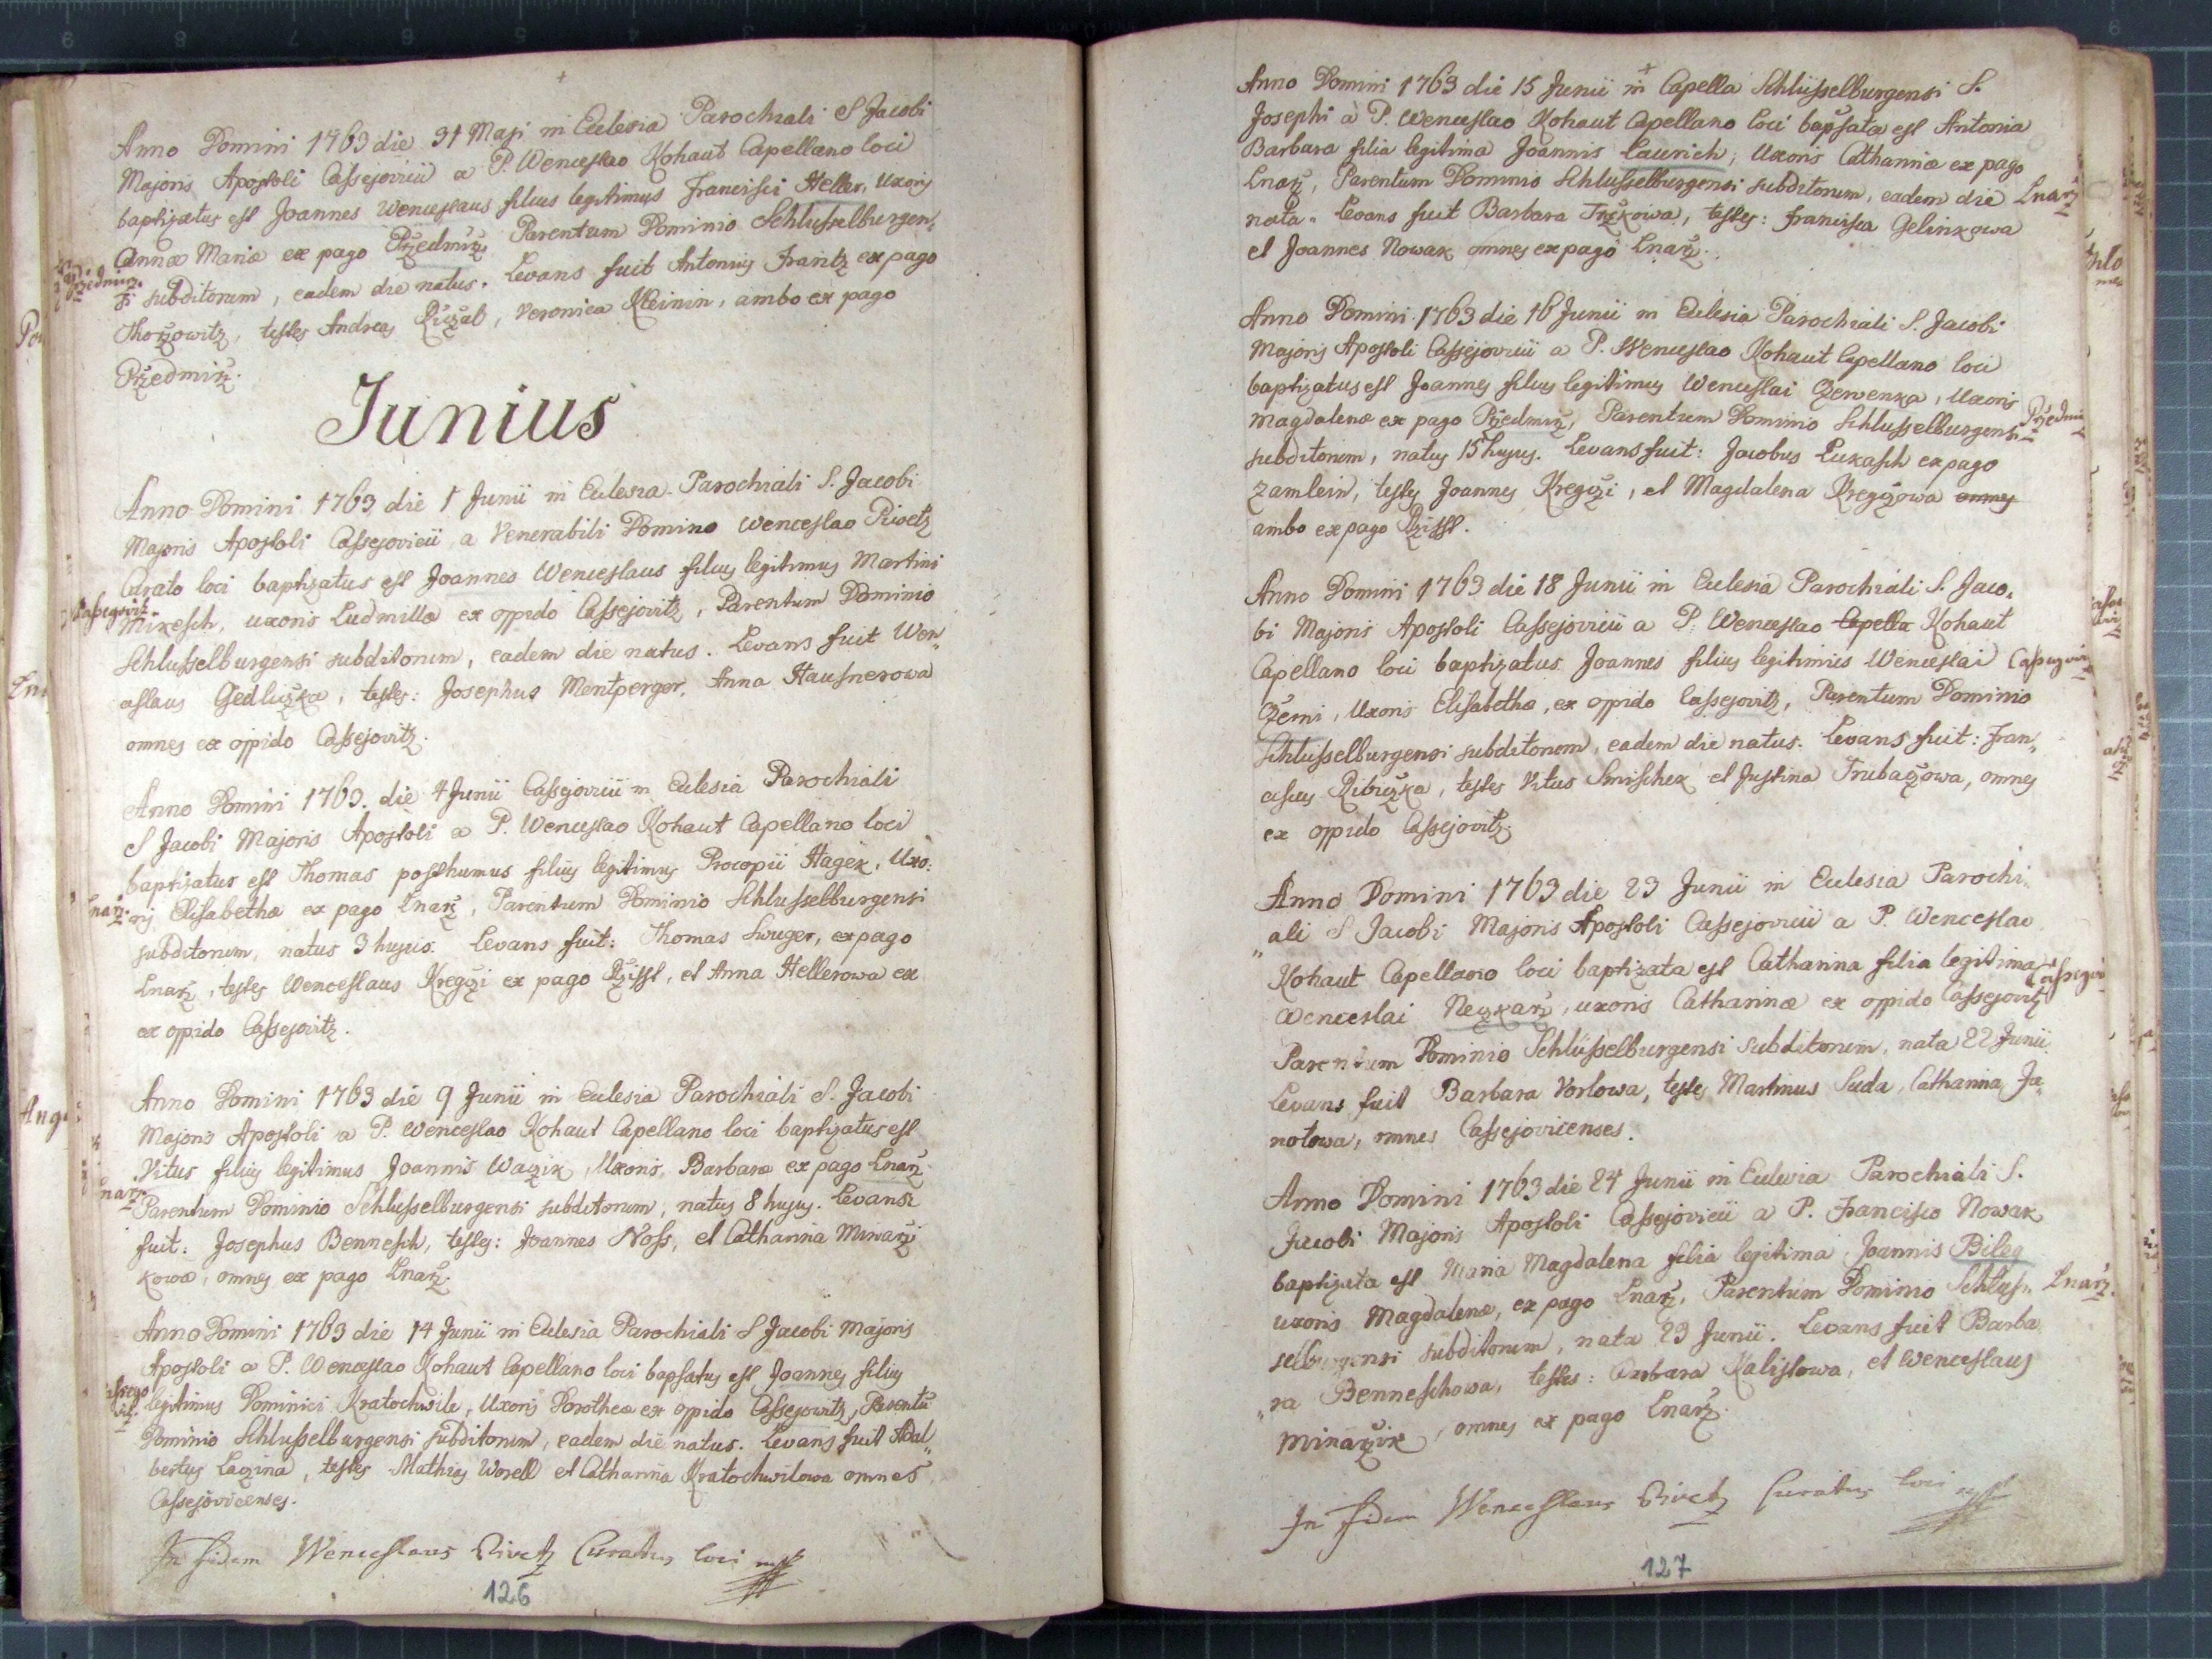 Anno Domini 1763 die 31 Maji in Eclesia Parochiali S Jacobi
Majoris Apostoli Cassejovicii a P. Wenceslao Kohaut Capellano loci
baptizatus est Joannes Wenceslaus filius legitimus Francisci Heller, Uxoris
Annæ Mariæ ex pago Przedmirz Parentum Dominio Schlusselburgen„
si subditorum, eadem die natus. Levans fuit Antonius Frantz ex pago
Thorzowitz, testes Andreas , Veronica Kleinin, ambo ex pago
Przedmirz.
Przedmirz.
Junius
Anno Domini 1763 die 1 Junii in Eclesia Parochiali S. Jacobi
Majoris Apostoli Cassejovicii a Venerabili Domino Wenceslao Pivetz
Curato loci baptizatus est Joannes Wenceslaus filius legitimus Martini
Mikesch, uxoris Ludmillæ ex oppido Cassejovitz, Parentum Dominio
Schlusselburgensi subditorum, eadem die natus. Levans fuit Wen„
ceslaus Gedliczka, testes: Josephus Mentperger, Anna Hausnerowa
omnes ex oppido Cassejovitz.
Anno Domini 1763. die 4 Junii Cassejovicii in Eclesia Parochiali
S Jacobi Majoris Apostoli a P. Wenceslao Kohaut Capellano loci
baptizatus est Thomas posthumus filius legitimus Procopii Hagek, Uxo:
ris Elisabethæ ex pago Lnarz, Parentum Dominio Schlusselburgensi
Lnarz.
subditorum, natus 3 hujus. Levans fuit: Thomas Swuger, ex pago
Lnarz, testes Wenceslaus Kregczi ex pago , et Anna Hellerowa ex
ex oppido Cassejovitz.
Anno Domini 1763 die 9 Junii in Eclesia Parochiali S. Jacobi
Majoris Apostoli a P. Wenceslao Kohaut Capellano loci baptizatus est
Vitus filius legitimus Joannis Waczik, Uxoris Barbaræ ex pago Lnarz
Parentum Dominio Schlusselburgensi subditorum, natus 8 hujus. Levans
Lnarz
fuit: Josephus Bennesch, testes: Joannes Noss, et Catharina Minarzi
kowa, omnes ex pago Lnarz.
Anno Domini 1763 die 14 Junii in Eclesia Parochiali S Jacobi Majoris
Apostoli a P. Wenceslao Kohaut Capellano loci bapsatus est Joannes filius
legitimus Dominici Kratochwile, Uxoris Dorotheæ ex oppido Cassejowitz, Parentũ
Dominio Schlusselburgensi subditorum, eadem die natus. Levans fuit Adal„
bertus Laczina, testes Mathias Worell et Catharina Kratochwilowa omnes
Cassejovicenses.
In fidem Wenceslaus Pivetz Curatus loci mpp
126
Anno Domini 1763 die 15 Junii in Capella Schlüsselburgensi S.
Josephi à P. Wenceslao Kohaut Capellano loci bapsata est Antonia
Barbara filia legitima Joannis Laurich, Uxoris Catharinæ ex pago
Lnarz, Parentum Dominio Schlusselburgensi subditorum, eadem die
Lnarz
nata. Levans fuit Barbara , testes: Francisca Gelinkowa
et Joannes Nowak omnes ex pago Lnarz.
Anno Domini 1763 die 16 Junii in Eclesia Parochiali S. Jacobi
Majoris Apostoli Cassejovicii a P. Wenceslao Kohaut Capellano loci
baptizatus est Joannes filius legitimus Wenceslai Czerwenka, Uxoris
Magdalenæ ex pago Przedmirz, Parentum Dominio Schlusselburgensi
Przedmi
subditorum, natus 15 hujus. Levans fuit: Jacobus Lukasch ex pago
Zamlein, testes Joannes Kregczi, et Magdalena Kregczowa omnes
ambo ex pago .
Anno Domini 1763 die 18 Junii in Eclesia Parochiali S. Jaco„
bi Majoris Apostoli Cassejovicii a P. Wenceslao Capella Kohaut
Capellano loci baptizatus Joannes filius legitimus Wenceslai
Czerni, Uxoris Elisabethæ, ex oppido Cassejovitz, Parentum Dominio
Schlusselburgensi subditorum, eadem die natus. Levans fuit: Fran„
ciscus Ribiczka, testes Vitus Smischek et Justina Trubaczowa, omnes
ex oppido Cassejovitz.
Anno Domini 1763 die 23 Junii in Eclesia Parochi„
ali S Jacobi Majoris Apostoli Cassejovicii a P. Wenceslao
Kohaut Capellano loci baptizata est Catharina filia legitima
Wenceslai Neczkarz, uxoris Catharinæ ex oppido Cassejovitz
Parentum Dominio Schlüsselburgensi subditorum, nata 22 Junii
Levans fuit Barbara Vorlowa, testes Martinus Suda, Catharina Ja„
notowa, omnes Cassejovicenses.
Anno Domini 1763 die 24 Junii in Eclesia Parochiali S.
Jacobi Majoris Apostoli Cassejovicii a P. Francisco Nowak
baptizata est Maria Magdalena filia legitima Joannis Bileg
uxoris Magdalenæ, ex pago Lnarz, Parentum Dominio Schlus„
Lnarz.
selburgensi subditorum, nata 23 Junii. Levans fuit Barba
„ra Benneschowa, testes: Barbara Kalistowa, et Wenceslaus
Minarzik, omnes ex pago Lnarz.
In fidem Wenceslaus Pivetz Curatus loci mpp
127